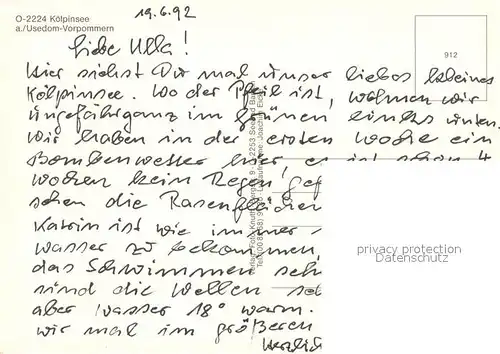 O-2224 Kölpinsee
a./Usedom-Vorpommern
19.6.92
912
Liebe Ulla!
Hier siehst Du mal unser liebes kleines
Kölpinsee. Wo der Pfeil ist, wohnen wir
ungefähr ganz im Grünen links unten.
Wir haben in der ersten Woche ein
Bombenwetter hier es ist schon 4
Wochen kein Regen! gef
sehen die Rasenflächen
Katrin ist wie immer
Wasser zu bekommen,
das Schwimmen seh
sind die Wellen se
aber Wasser 18° warm.
wir mal im größeren
Herzlich
privacy protection
Datenschutz